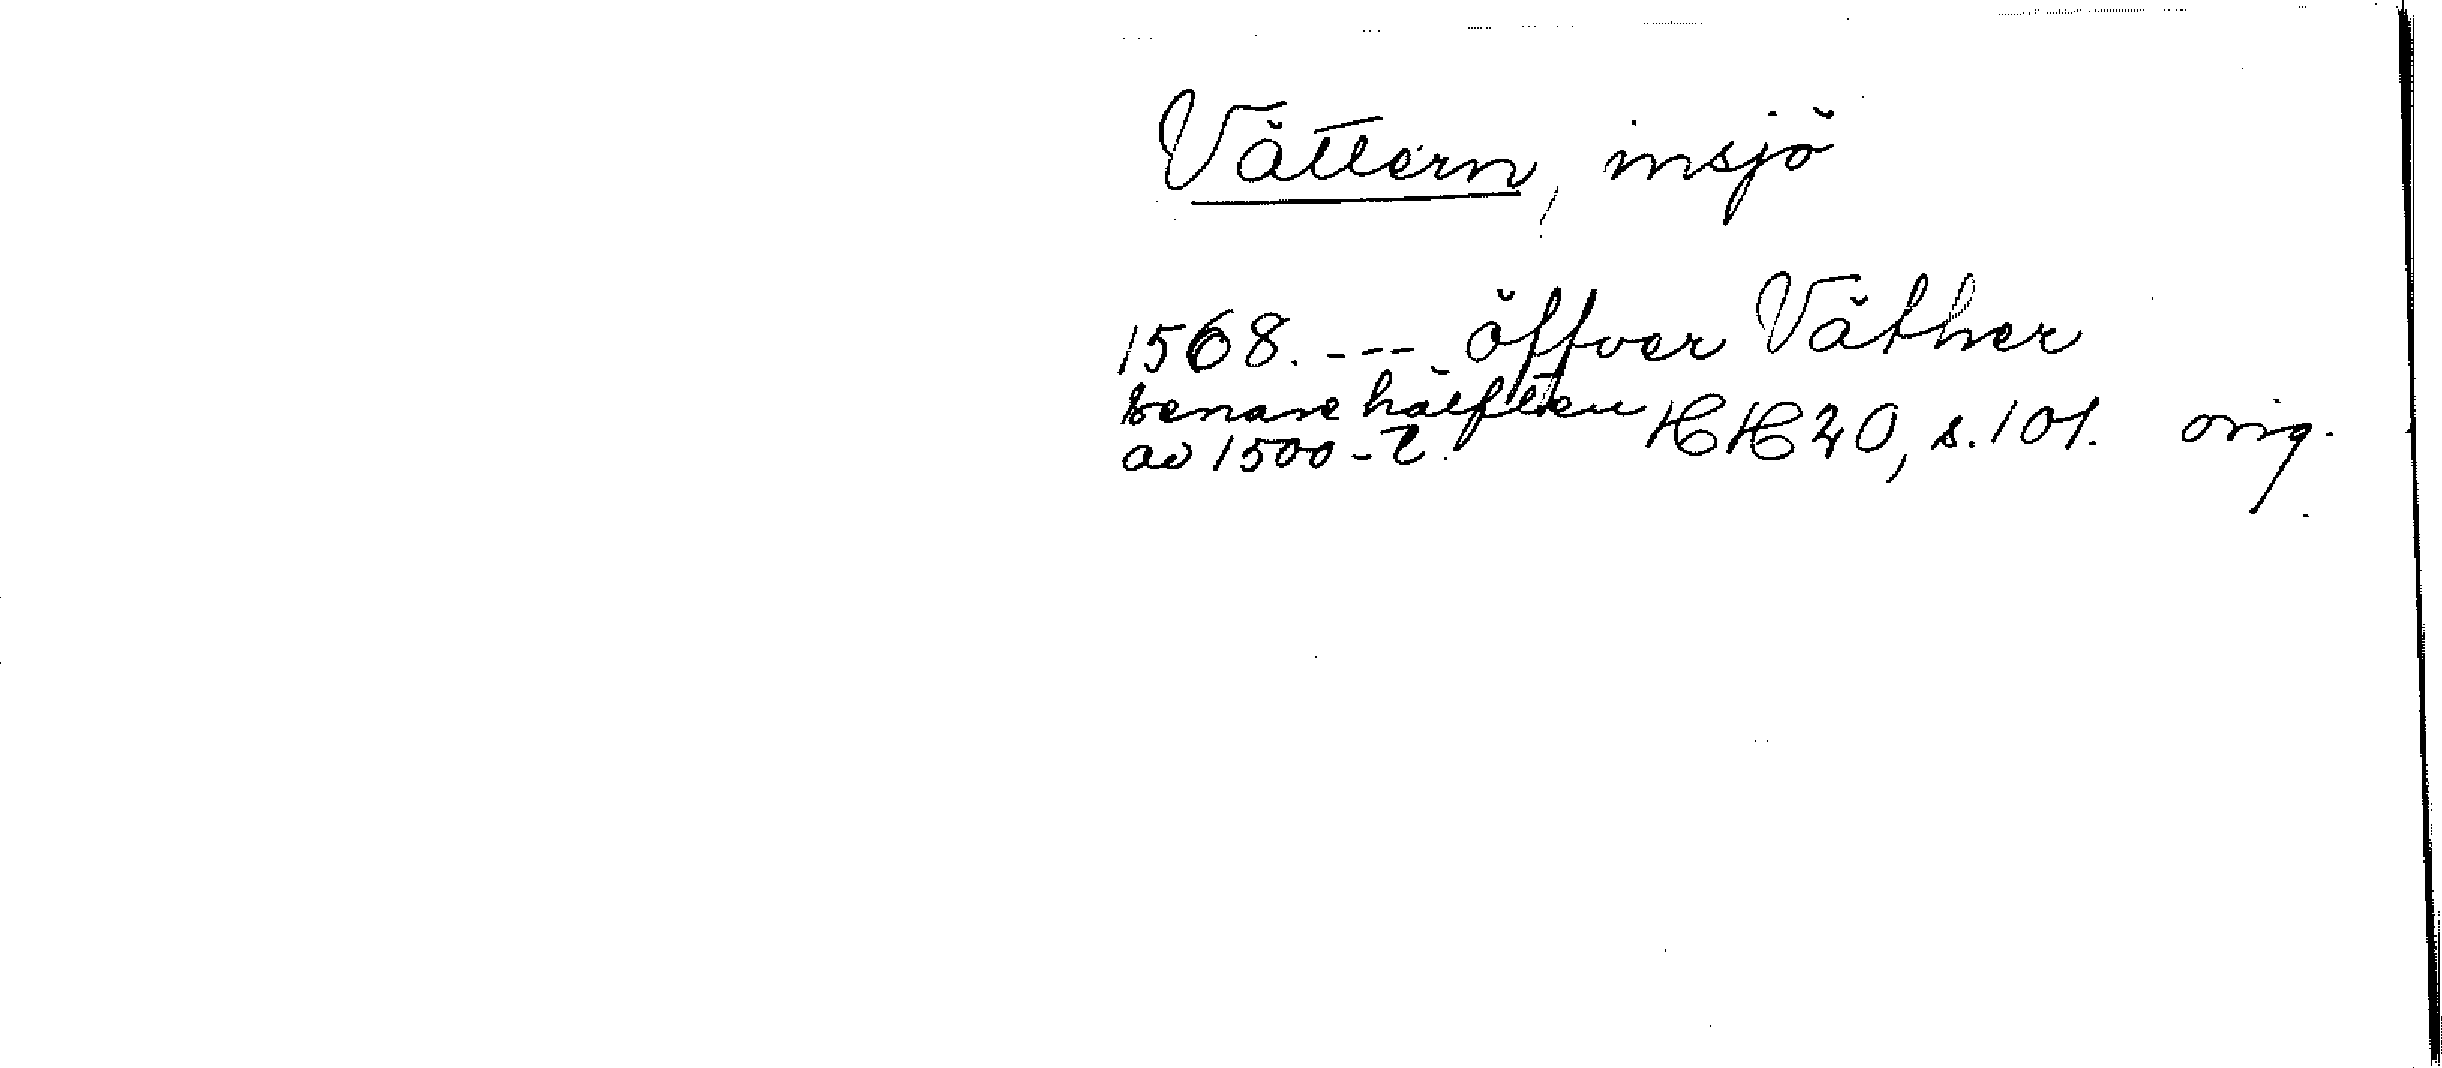 Vättern, insjö
1568. --- öffver Väther
senare hälften
av 1500-t. HH 20, s. 101. orig.